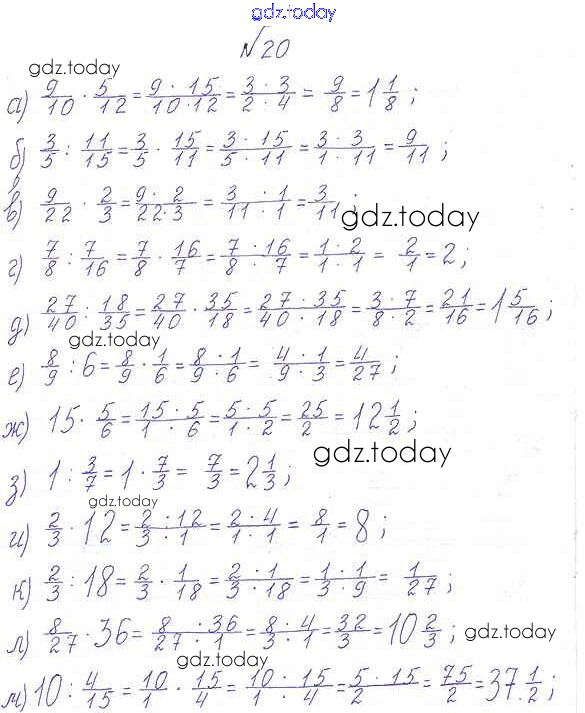 gdz.today
№20
gdz.today
а) 9/10 · 5/12 = 9 · 15/10 · 12 = 3 · 3/2 · 4 = 9/8 = 1 1/8 ;
б) 3/5 : 11/15 = 3/5 · 15/11 = 3 · 15/5 · 11 = 3 · 3/1 · 11 = 9/11 ;
в) 9/22 · 2/3 = 9 · 2/22 · 3 = 3 · 1/11 · 1 = 3/11 ;
gdz.today
г) 7/8 : 7/16 = 7/8 · 16/7 = 7 · 16/8 · 7 = 1 · 2/1 · 1 = 2/1 = 2 ;
д) 27/40 : 18/35 = 27/40 · 35/18 = 27 · 35/40 · 18 = 3 · 7/8 · 2 = 21/16 = 1 5/16 ;
gdz.today
е) 8/9 : 6 = 8/9 · 1/6 = 8 · 1/9 · 6 = 4 · 1/9 · 3 = 4/27 ;
ж) 15 · 5/6 = 15 · 5/1 · 6 = 5 · 5/1 · 2 = 25/2 = 12 1/2 ;
gdz.today
з) 1 : 3/7 = 1 · 7/3 = 7/3 = 2 1/3 ;
gdz.today
и) 2/3 · 12 = 2 · 12/3 · 1 = 2 · 4/1 · 1 = 8/1 = 8 ;
к) 2/3 : 18 = 2/3 · 1/18 = 2 · 1/3 · 18 = 1 · 1/3 · 9 = 1/27 ;
л) 8/27 · 36 = 8 · 36/27 · 1 = 8 · 4/3 · 1 = 32/3 = 10 2/3 ;
gdz.today
gdz.today
м) 10 : 4/15 = 10/1 · 15/4 = 10 · 15/1 · 4 = 5 · 15/2 = 75/2 = 37 1/2 ;